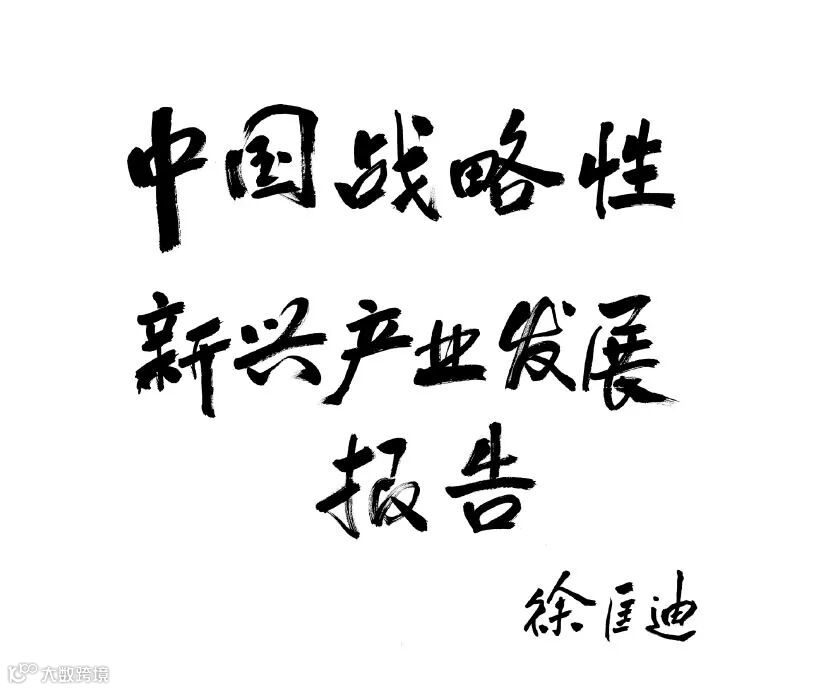 中国战略性
新兴产业发展
报告
徐匡迪
大数跨境